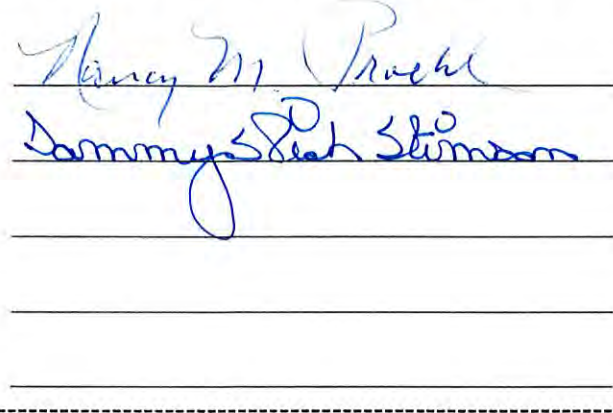 Nancy M. Proehl
Tammy Rich Stimson